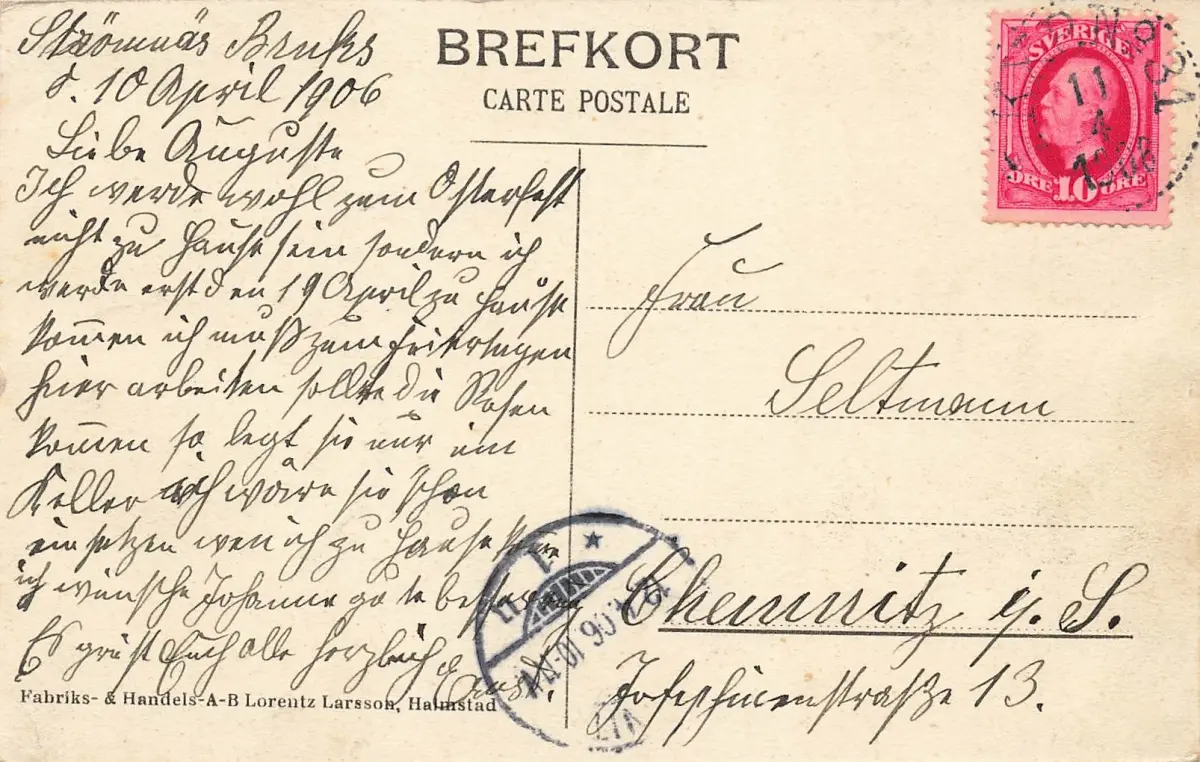 Strömnäs Bruks
d. 10 April 1906
Liebe Auguste
Ich werde wohl zum Osterfest
nicht zu Hause sein sondern ich
werde erst den 19 April zu Hause
kom̅en ich muß zum Feiertagen
hier arbeiten sollte die Rosen
kom̅en so legt sie nur im
Keller ich wäre sie schon
einsetzen wen ich zu Hause
ich wünsche Johanne gute besserung
Es grüst Euch alle herzlich
Fabriks- & Handels-A-B Lorentz Larsson, Halmstad
BREFKORT
CARTE POSTALE
SVERIGE
10
ÖRE ÖRE
PKXP.Nr 31
11
4
1906
Frau
Seltmann
Chemnitz i. S.
Josephinenstraße 13.